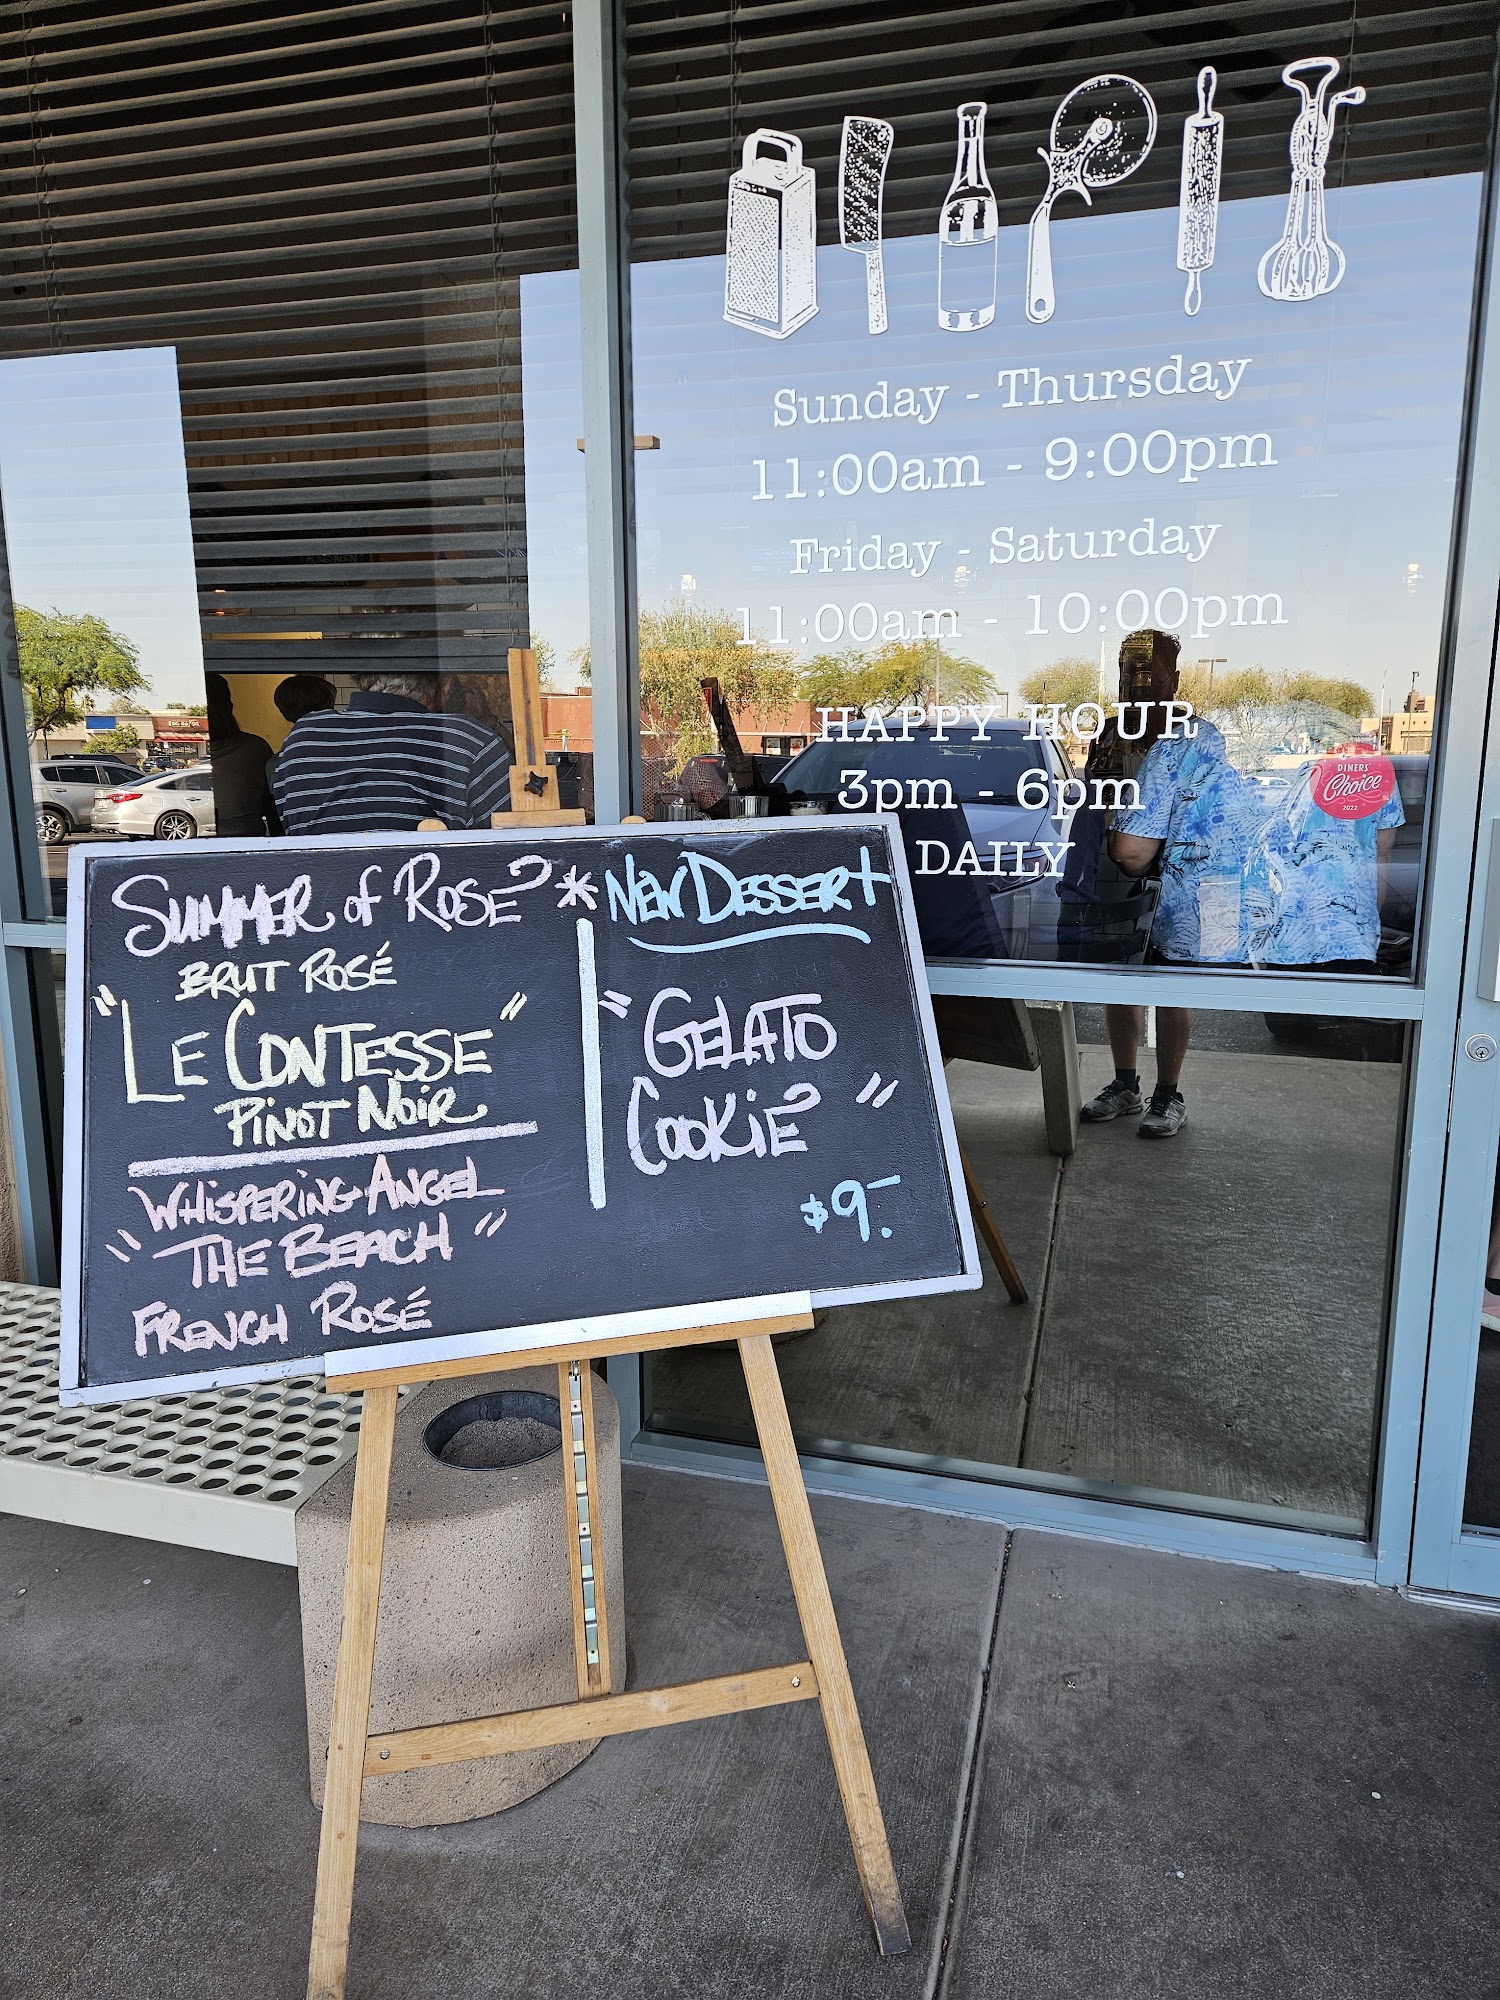 Sunday - Thursday
11:00am - 9:00pm
Friday - Saturday
11:00am - 10:00pm
HAPPY HOUR
3pm - 6pm
DAILY
DINERS'
Choice
2022
SUMMER of ROSÉ *
BRUT ROSÉ
"LE CONTESSE"
PINOT NOIR
WHISPERING ANGEL
"THE BEACH"
FRENCH ROSÉ
NEW DESSERT
"GELATO
COOKIE"
$9.-